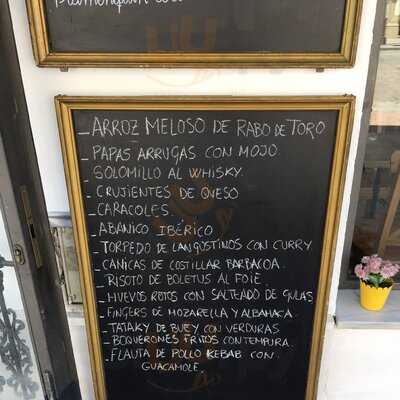 _ ARROZ MELOSO DE RABO DE TORO
_ PAPAS ARRUGAS CON MOJO
_ SOLOMILLO AL WHISKY.
_ CRUJIENTES DE QUESO
_ CARACOLES.
_ ABANICO IBÉRICO
_ TORPEDO DE LANGOSTINOS CON CURRY
_ CANICAS DE COSTILLAR BARBACOA.
_ RISOTO DE BOLETUS AL FOIE
_ HUEVOS ROTOS CON SALTEADO DE GULAS
_ FINGERS DE MOZARELLA Y ALBAHACA.
_ TATAKY DE BUEY CON VERDURAS
_ BOQUERONES FRITOS CON TEMPURA.
_ FLAUTA DE POLLO KEBAB CON
GUACAMOLE.